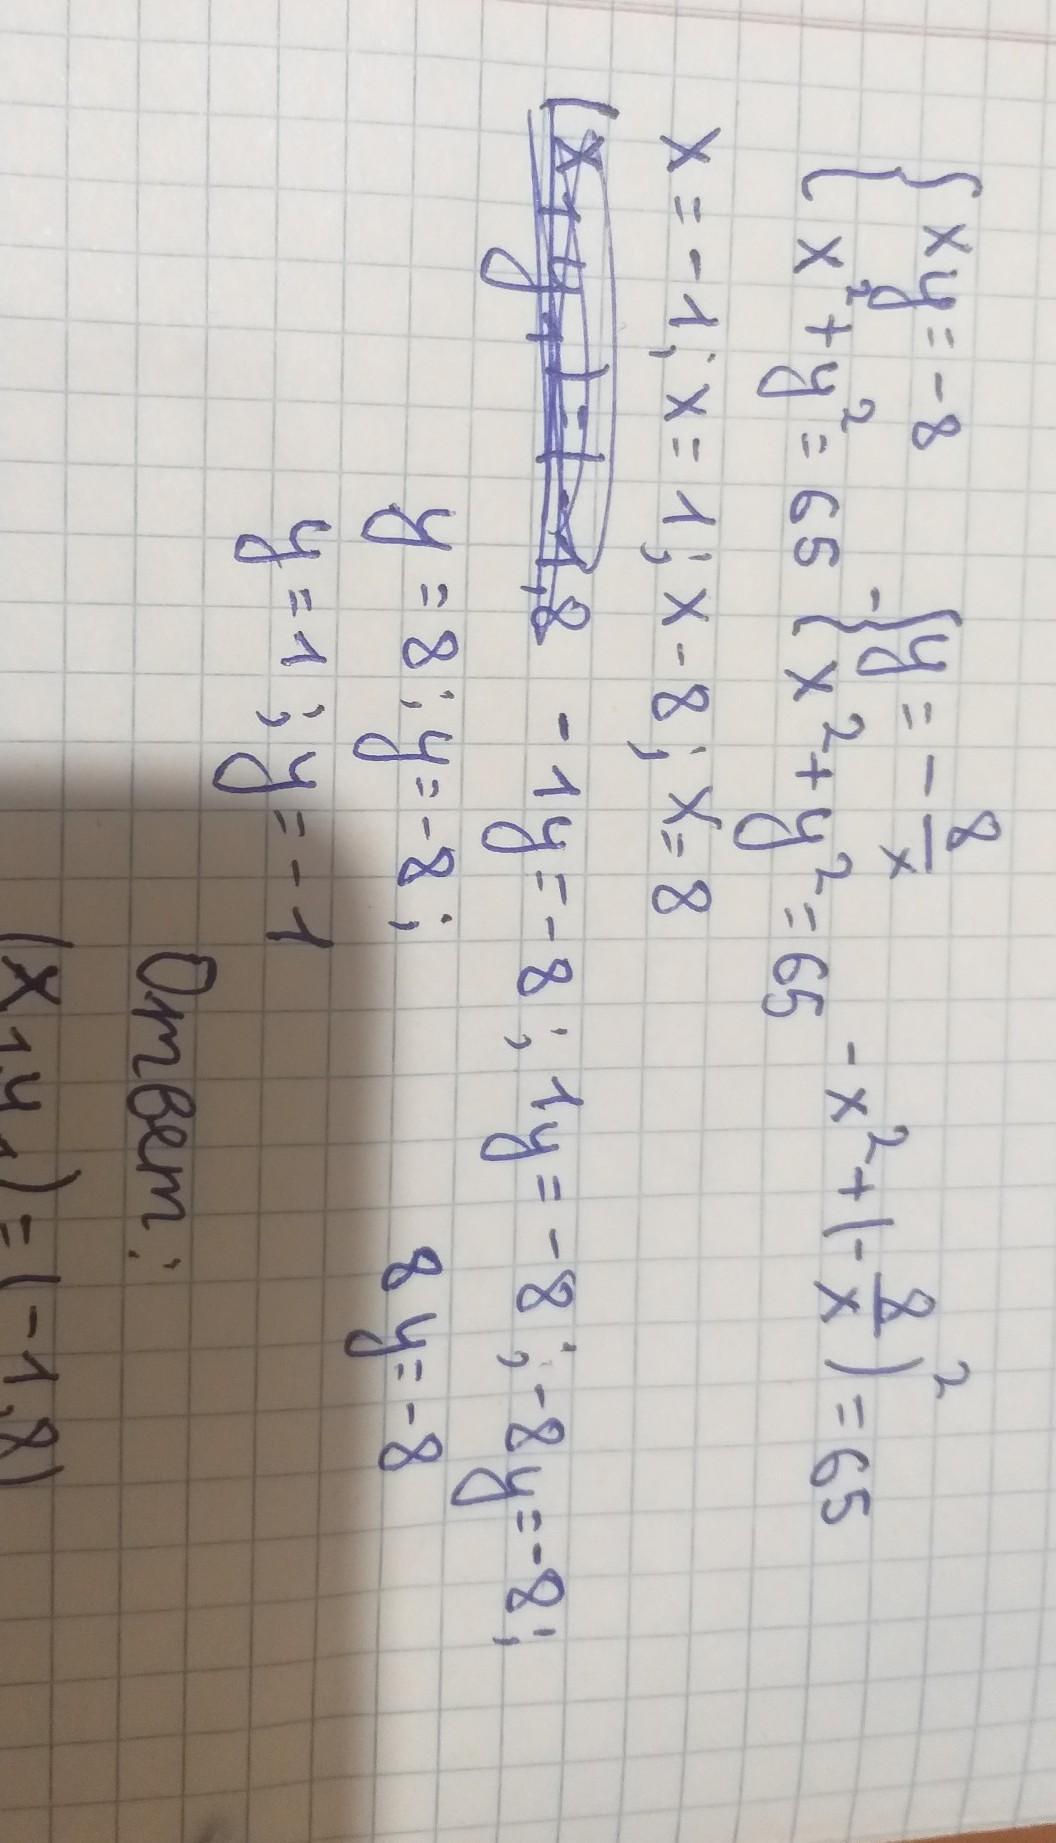 { xy = -8 { y = - 8/x
{ x² + y² = 65 - { x² + y² = 65 - x² + (- 8/x)² = 65
x = -1; x = 1; x - 8; x = 8
-1y = -8; 1y = -8; -8y = -8;
8y = -8
y = 8; y = -8;
y = 1; y = -1
Ответ:
(x1,y1) = (-1,8)